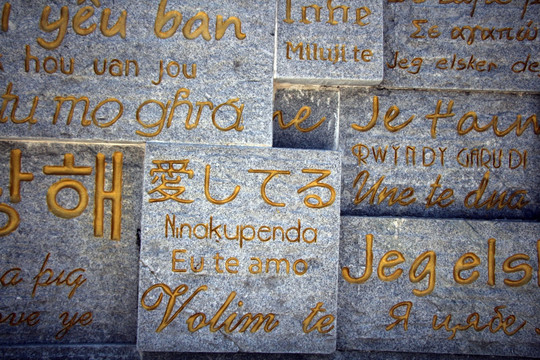 yêu bạn
hou van jou
mo ghrá
Miluji te
Σε αγαπώ
Jeg elsker de
Je t'aim
RWY'N DY GARU DI
Une te dua
랑해
pig
ye
愛してる
Ninakupenda
Eu te amo
Volim te
Jeg elsk
Я цябе